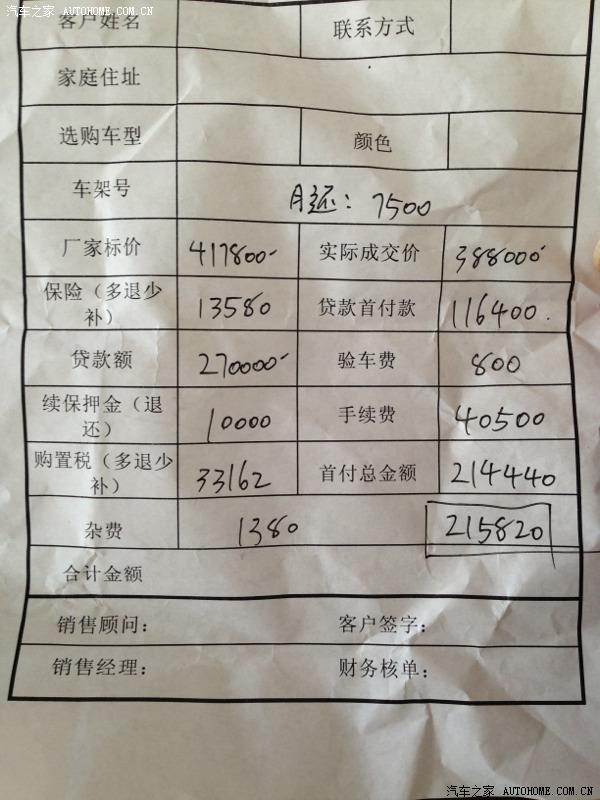 汽车之家 AUTOHOME.COM.CN
客户姓名 联系方式
家庭住址
选购车型 颜色
车架号 月还：7500
厂家标价 417800 实际成交价 388000
保险（多退少补） 13580 贷款首付款 116400.
贷款额 270000 验车费 800
续保押金（退还） 10000 手续费 40500
购置税（多退少补） 33162 首付总金额 214440
杂费 1380 215820
合计金额
销售顾问： 客户签字：
销售经理： 财务核单：
汽车之家 AUTOHOME.COM.CN